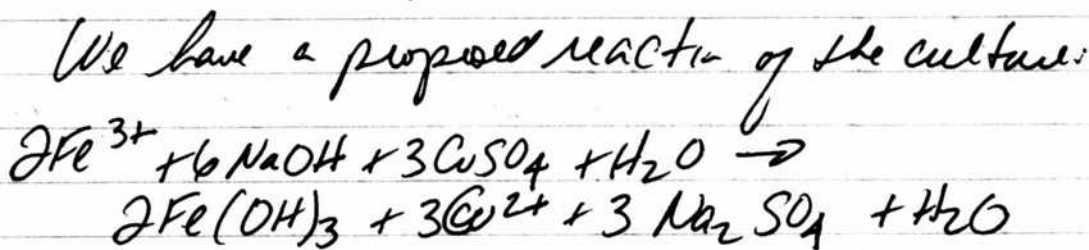 We have a proposed reaction of the culture:
2Fe³⁺ + 6 NaOH + 3CuSO₄ + H₂O →
2Fe(OH)₃ + 3Cu²⁺ + 3 Na₂SO₄ + H₂O